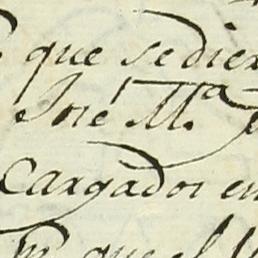 que se dier
José M.ª
Cargador en
que el